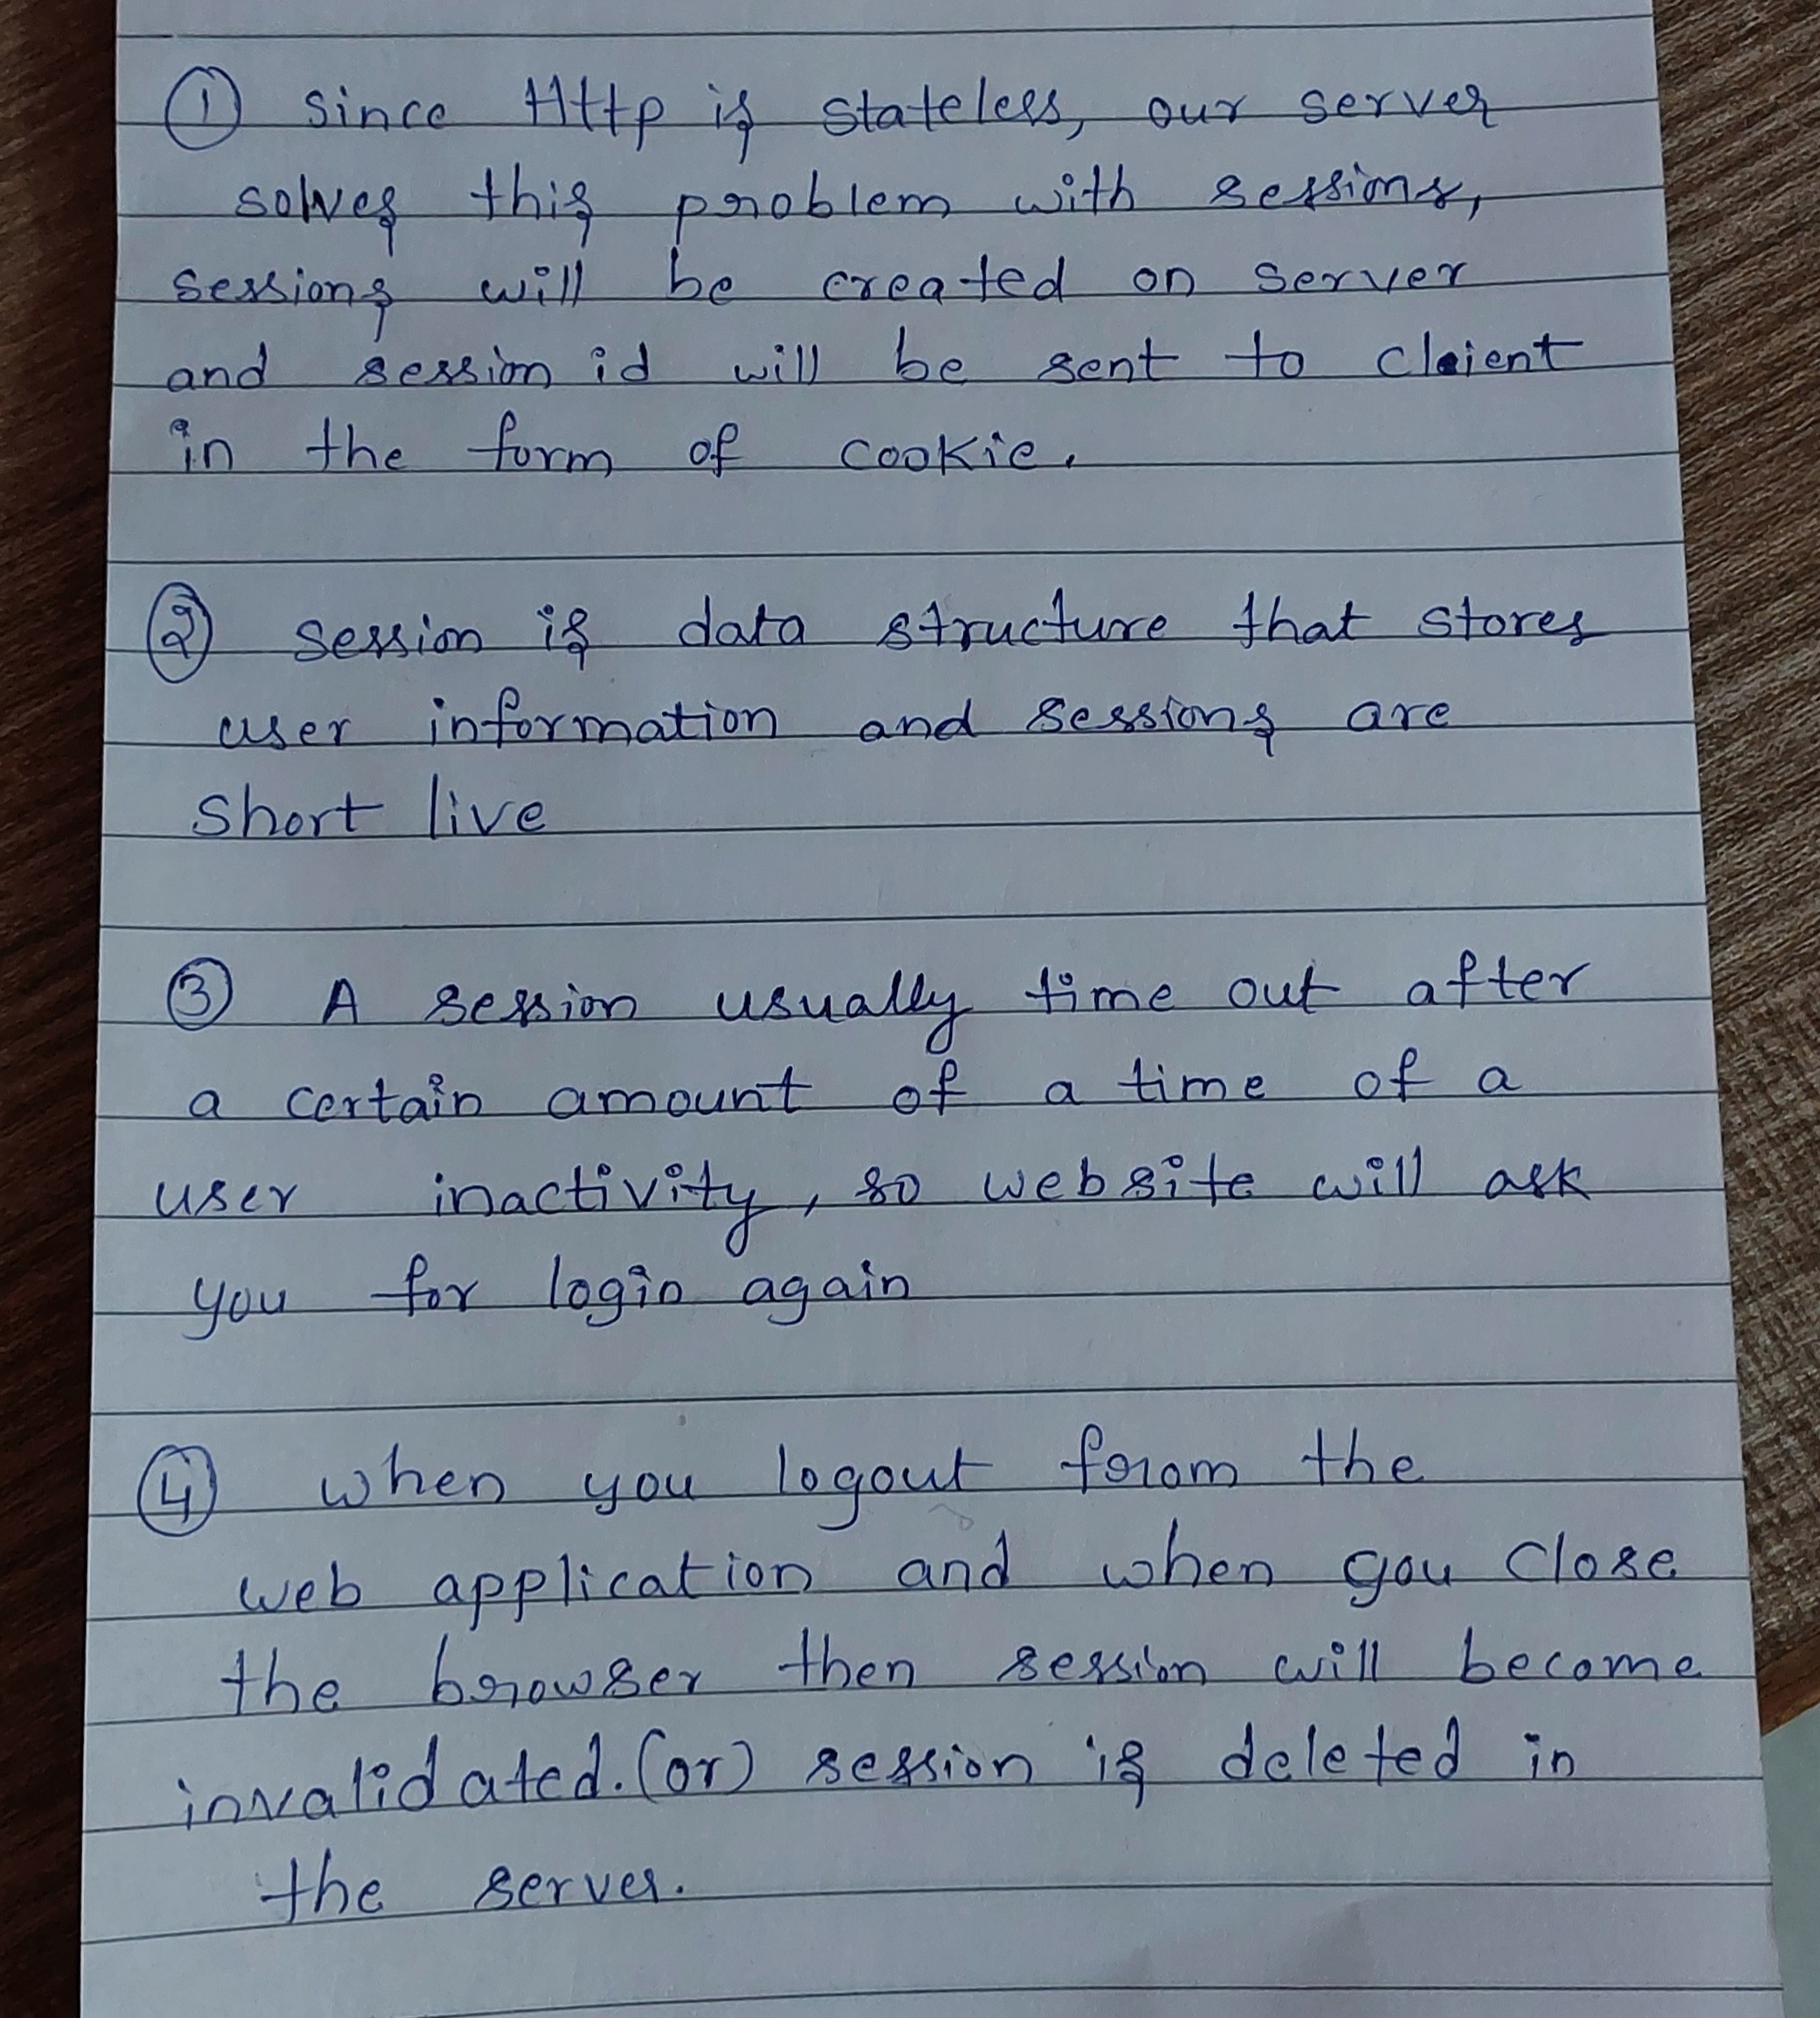 ① since Http is stateless, our server
solves this problem with sessions,
sessions will be created on server
and session id will be sent to cleient
in the form of cookie.
② session is data structure that stores
user information and sessions are
short live
③ A session usually time out after
a certain amount of a time of a
user inactivity, so website will ask
you for login again
④ when you logout from the
web application and when you close
the browser then session will become
invalidated. (or) session is deleted in
the server.